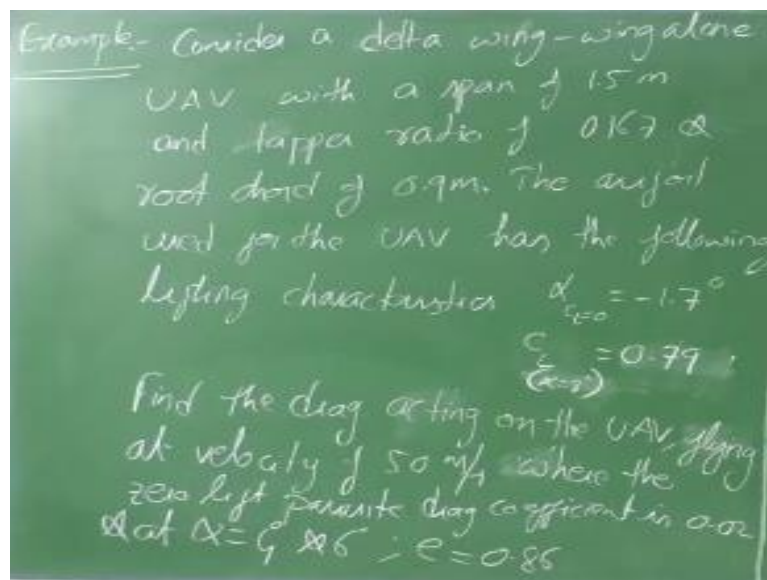 Example:- Consider a delta wing-wing alone
UAV with a span of 1.5 m
and tapper ratio of 0.167 &
root chord of 0.9m. The airfoil
used for the UAV has the following
lifting characteristics α_{C_L=0} = -1.7°
C_L = 0.79
Find the drag acting on the UAV, flying
at velocity of 50 m/s where the
zero lift parasite drag coefficient is 0.02
at α = 6 ; e = 0.86